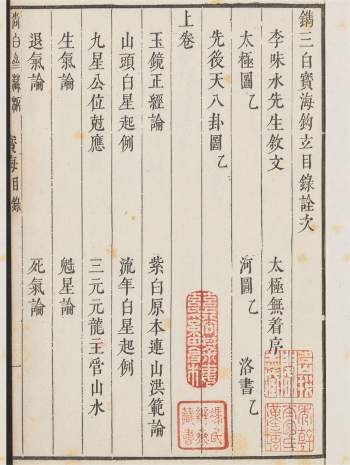 鐫三白寶海鈎玄目錄詮次
李味水先生敘文　太極無着序
太極圖乙　河圖乙　洛書乙
先後天八卦圖乙
上卷
玉鏡正經論　紫白原本連山洪範論
山頭白星起例　流年白星起例
九星公位尅應　三元元龍主管山水
生氣論　魁星論
退氣論　死氣論
寶海目錄